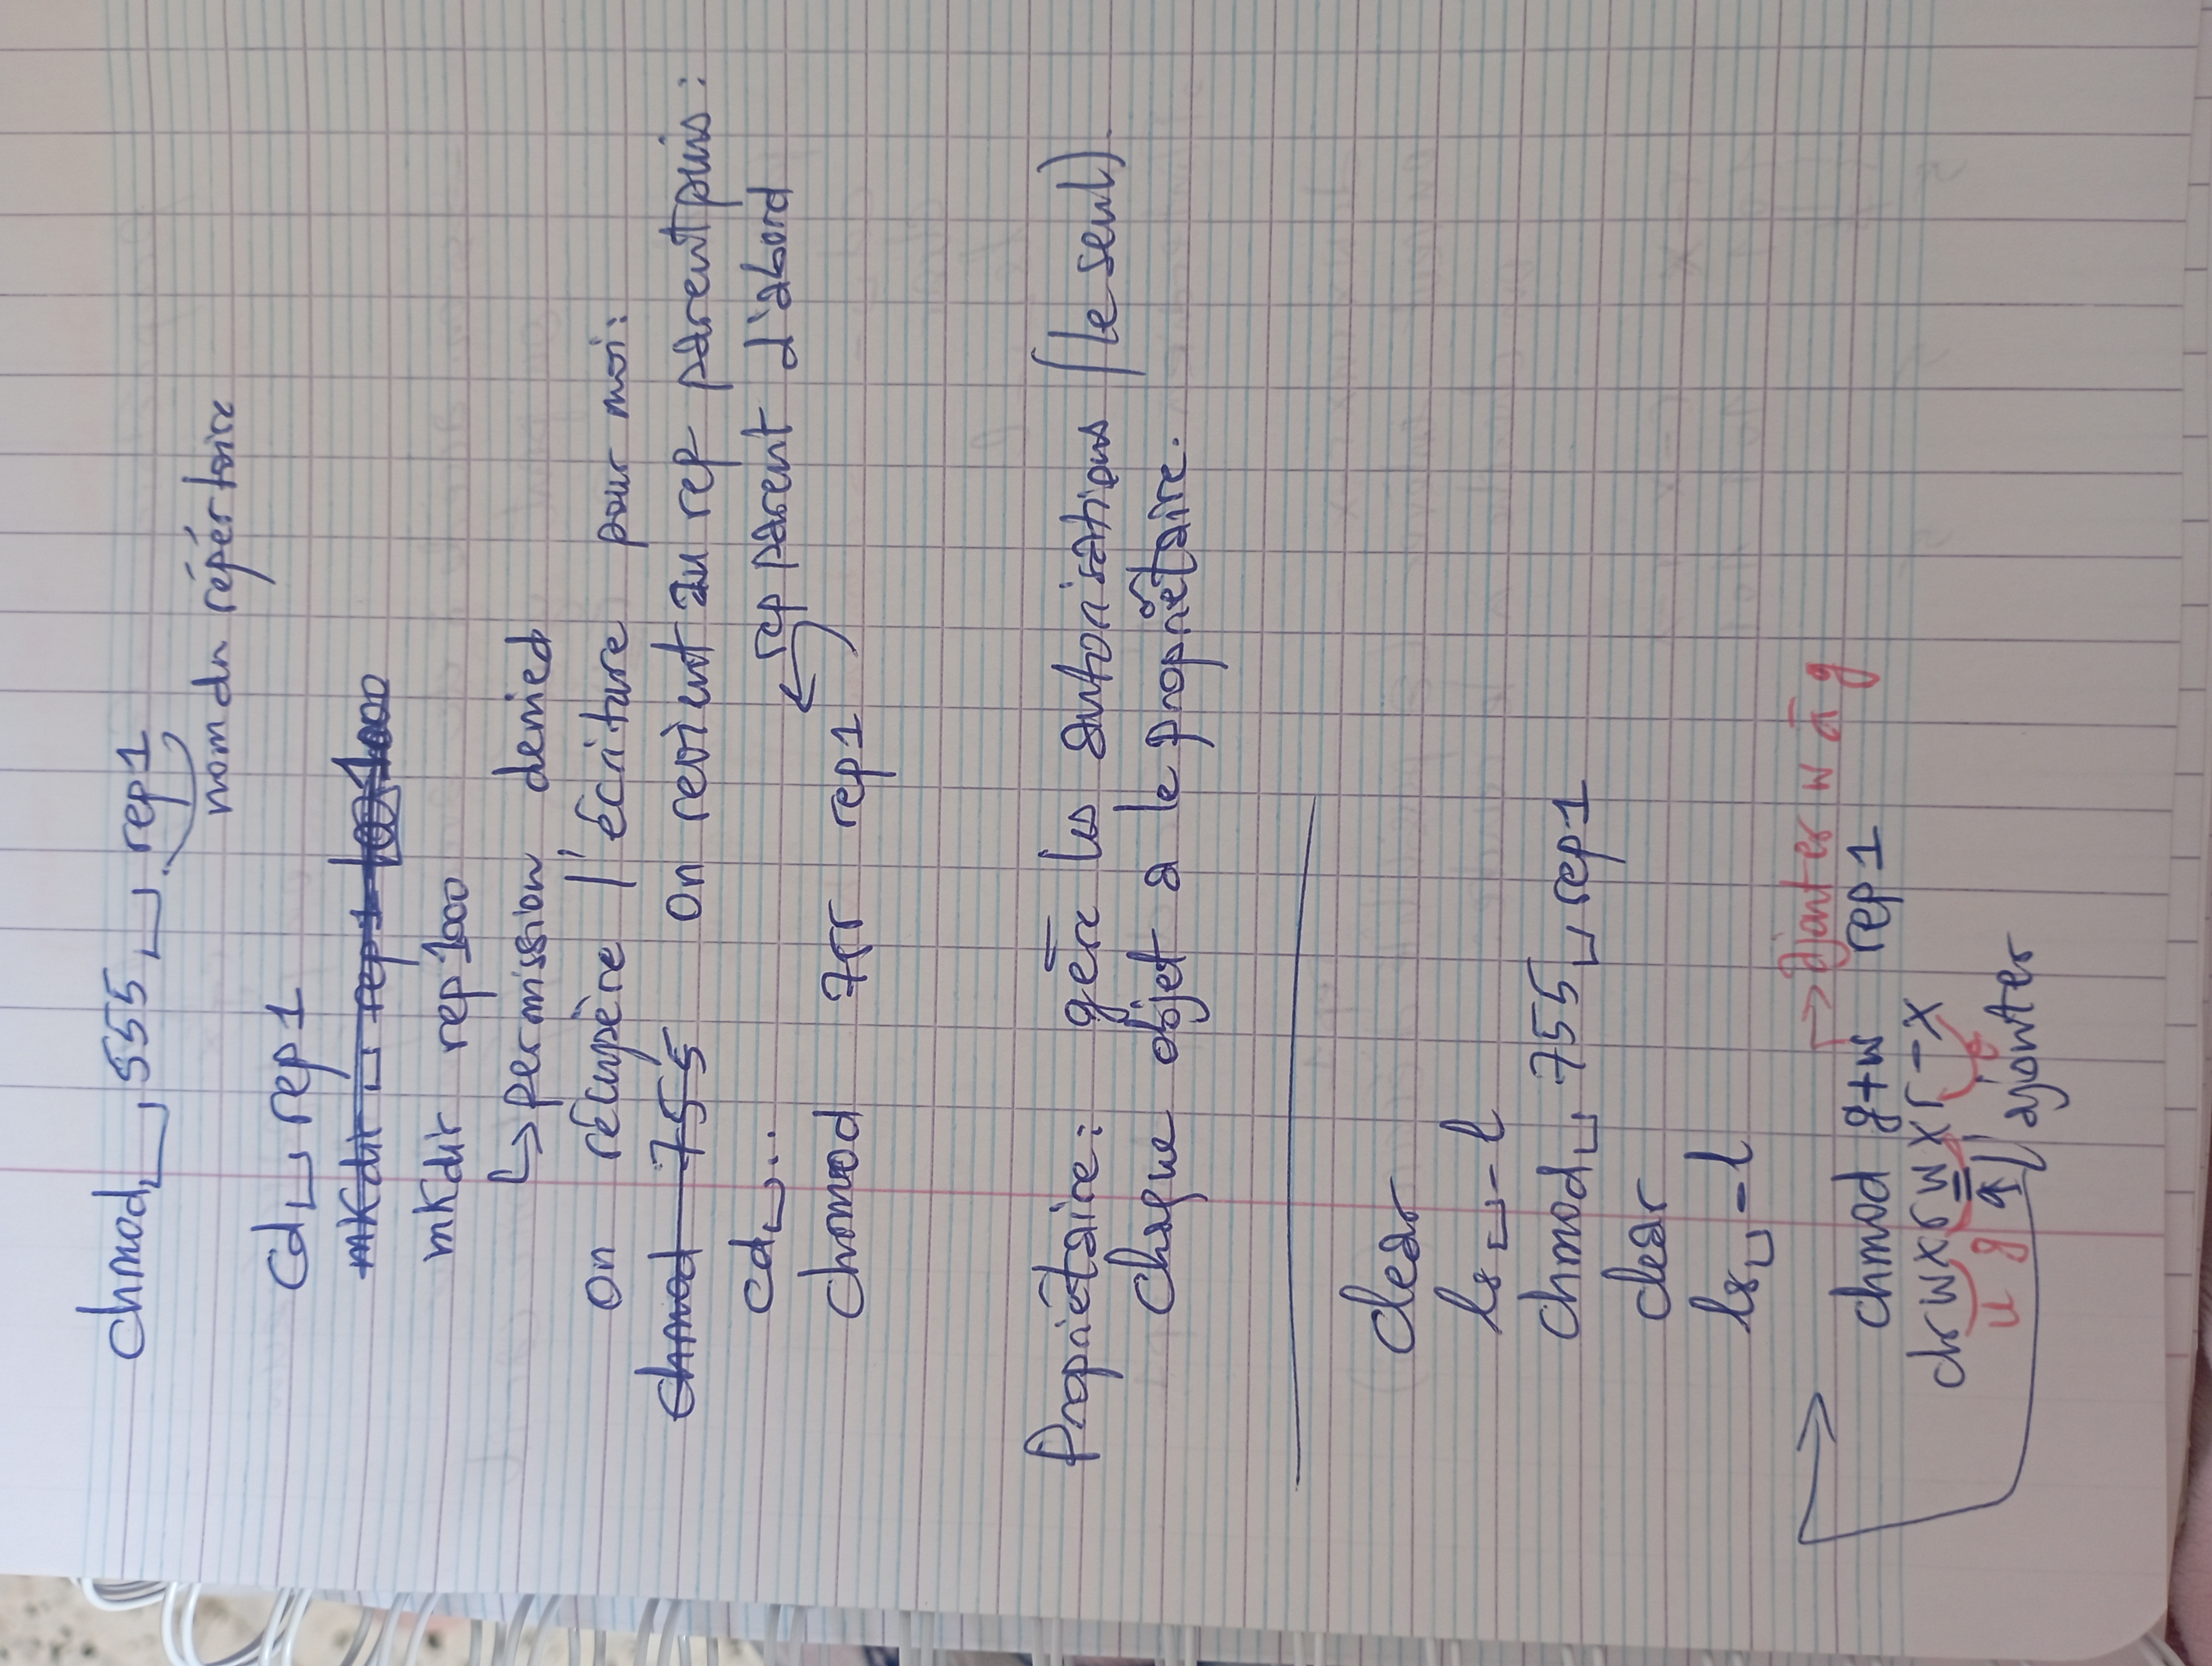 chmod␣555␣rep1
nom du répértoire
cd␣rep1
mkdir␣rep1 1000
mkdir rep1000
↳permission denied
on récupère l'écriture pour moi:
chmod 755 on revient au rep parent puis:
cd␣..
rep parent d'abord
chmod 755 rep1
Propriétaire: gère les autorisations (le seul).
chaque objet a le propriétaire.
clear
ls␣-l
chmod␣755␣rep1
clear
ls␣-l
→ajouter w à g
chmod g+w rep1
drwxrwxr-x
u g o
l'ajouter